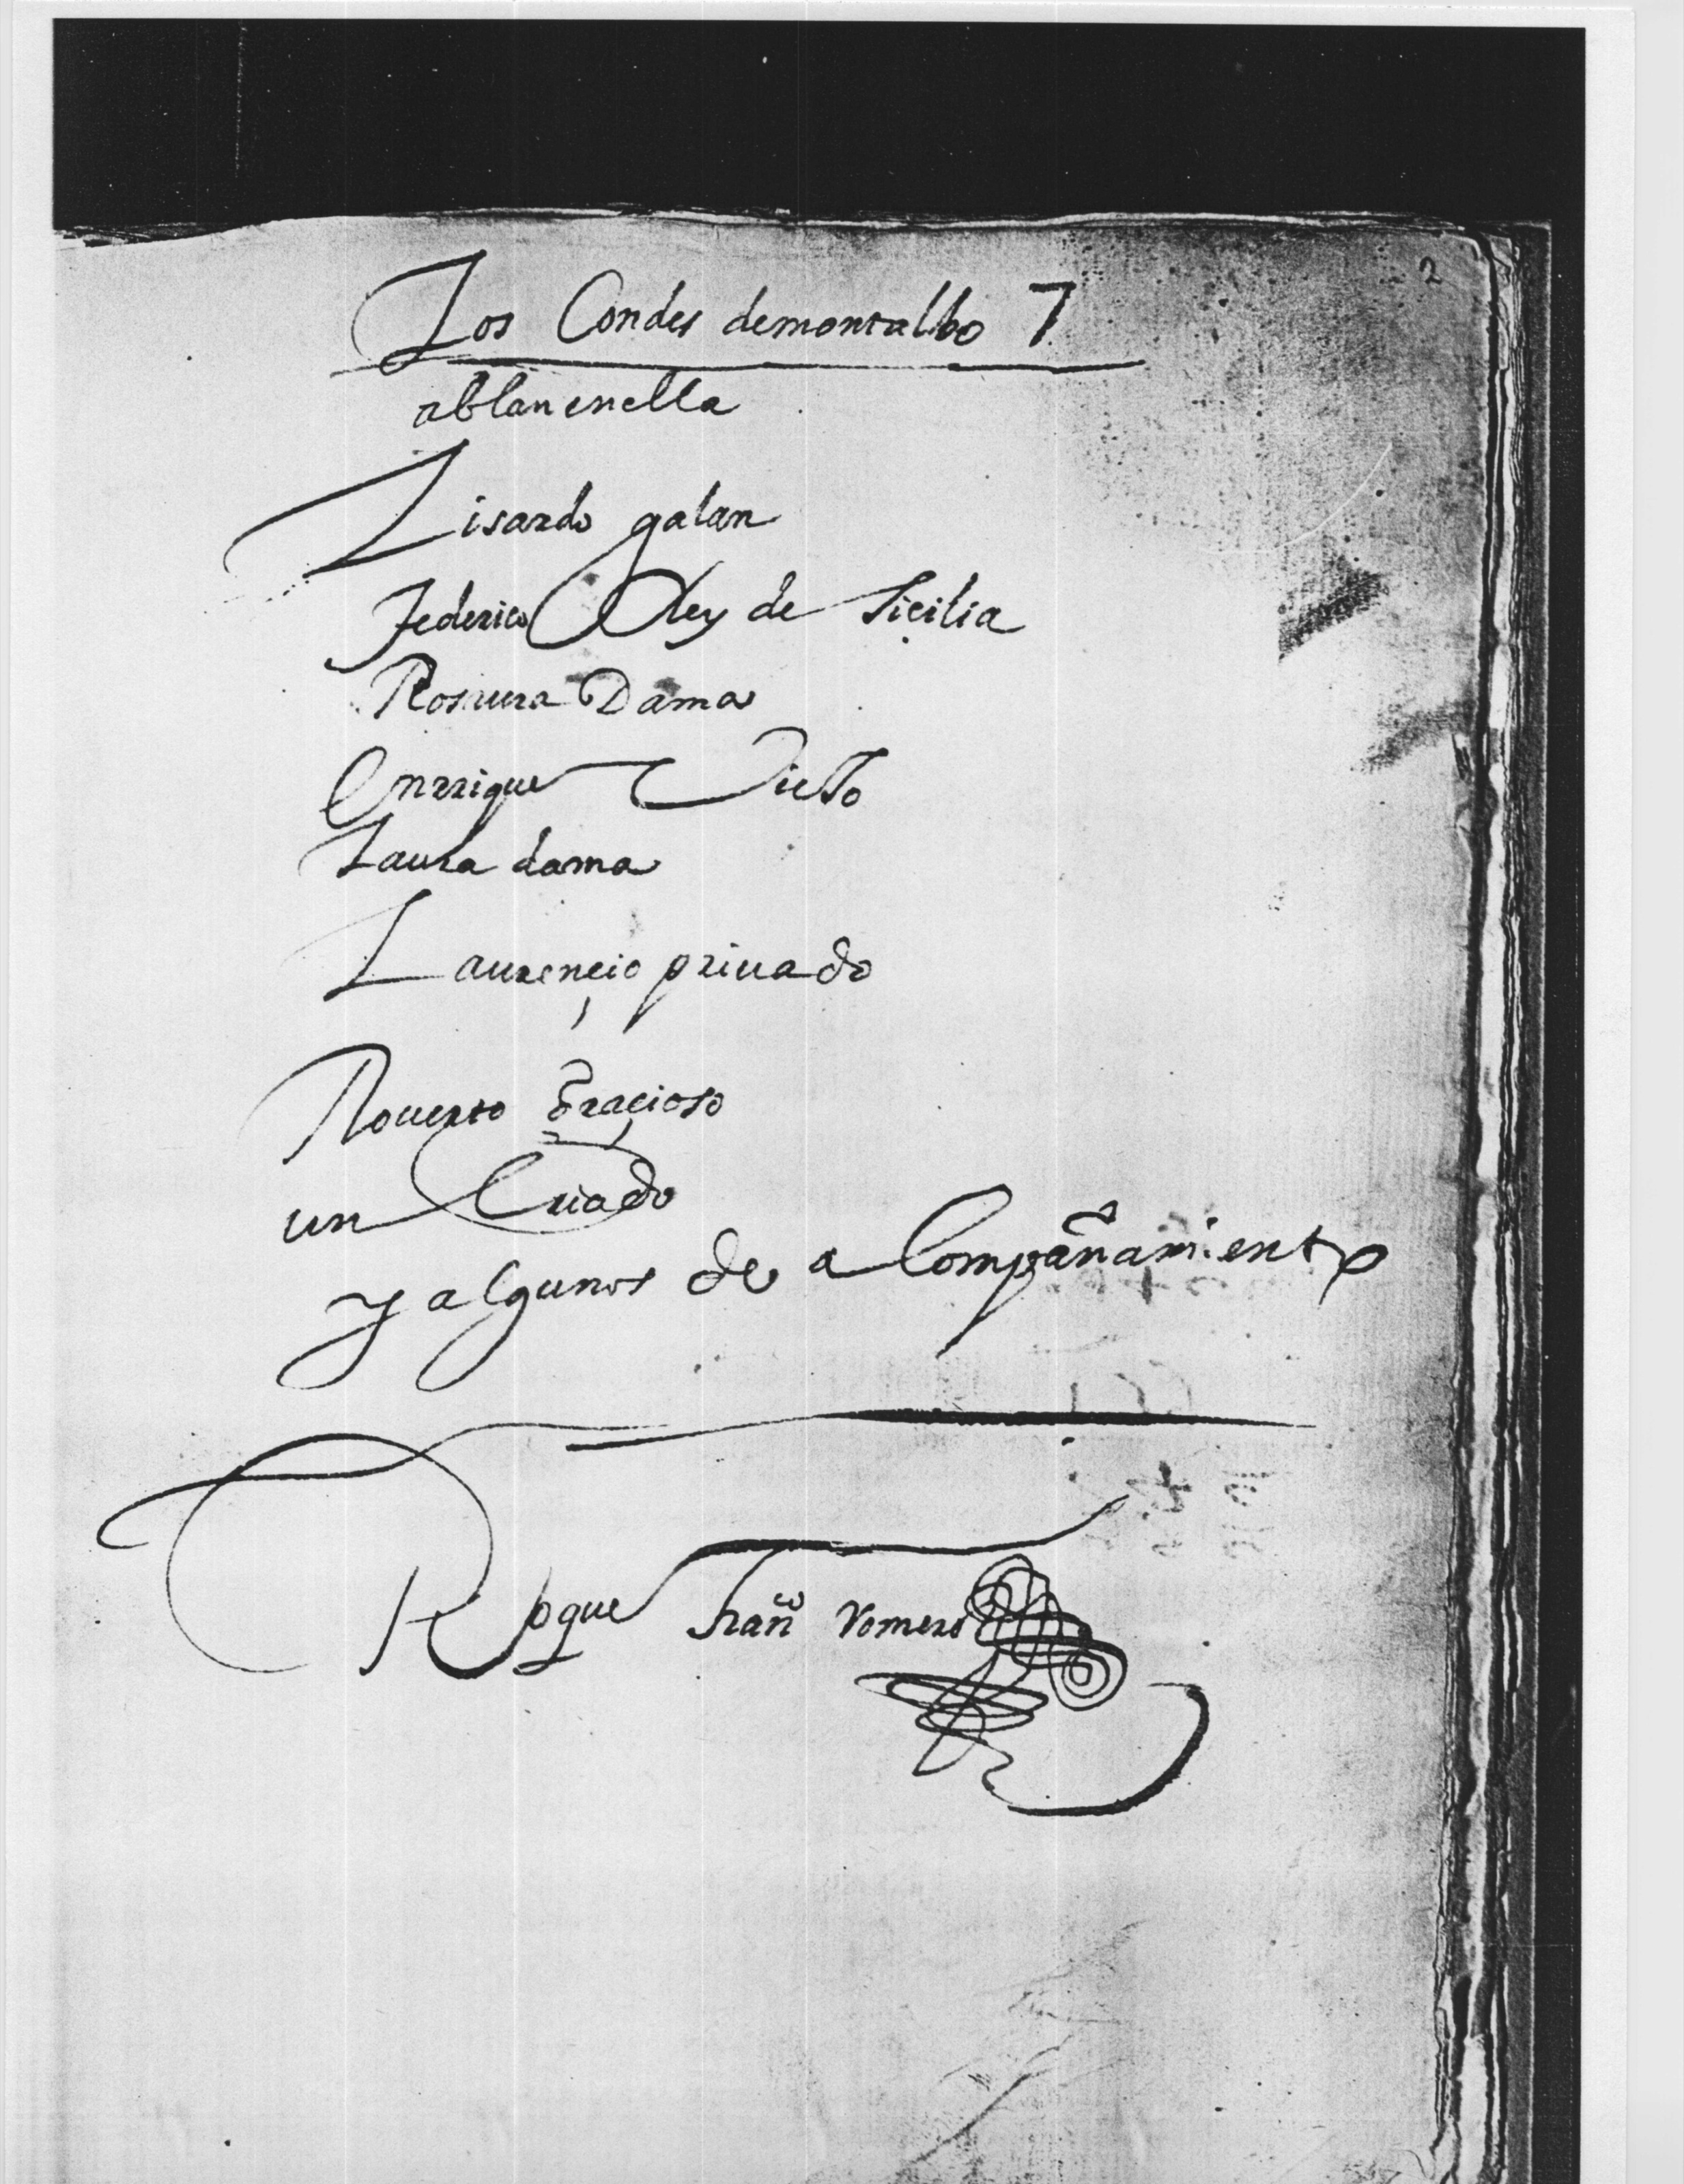 2
Los Condes demontalbo 7
ablan enella
Lisardo galan
federico Rey de Sicilia
Rosaura Dama
Enrrique Viejo
Laura dama
Laurençio priuado
Rouerto graçioso
un Criado
y algunos de aCompañamiento
Roque Franco Romero